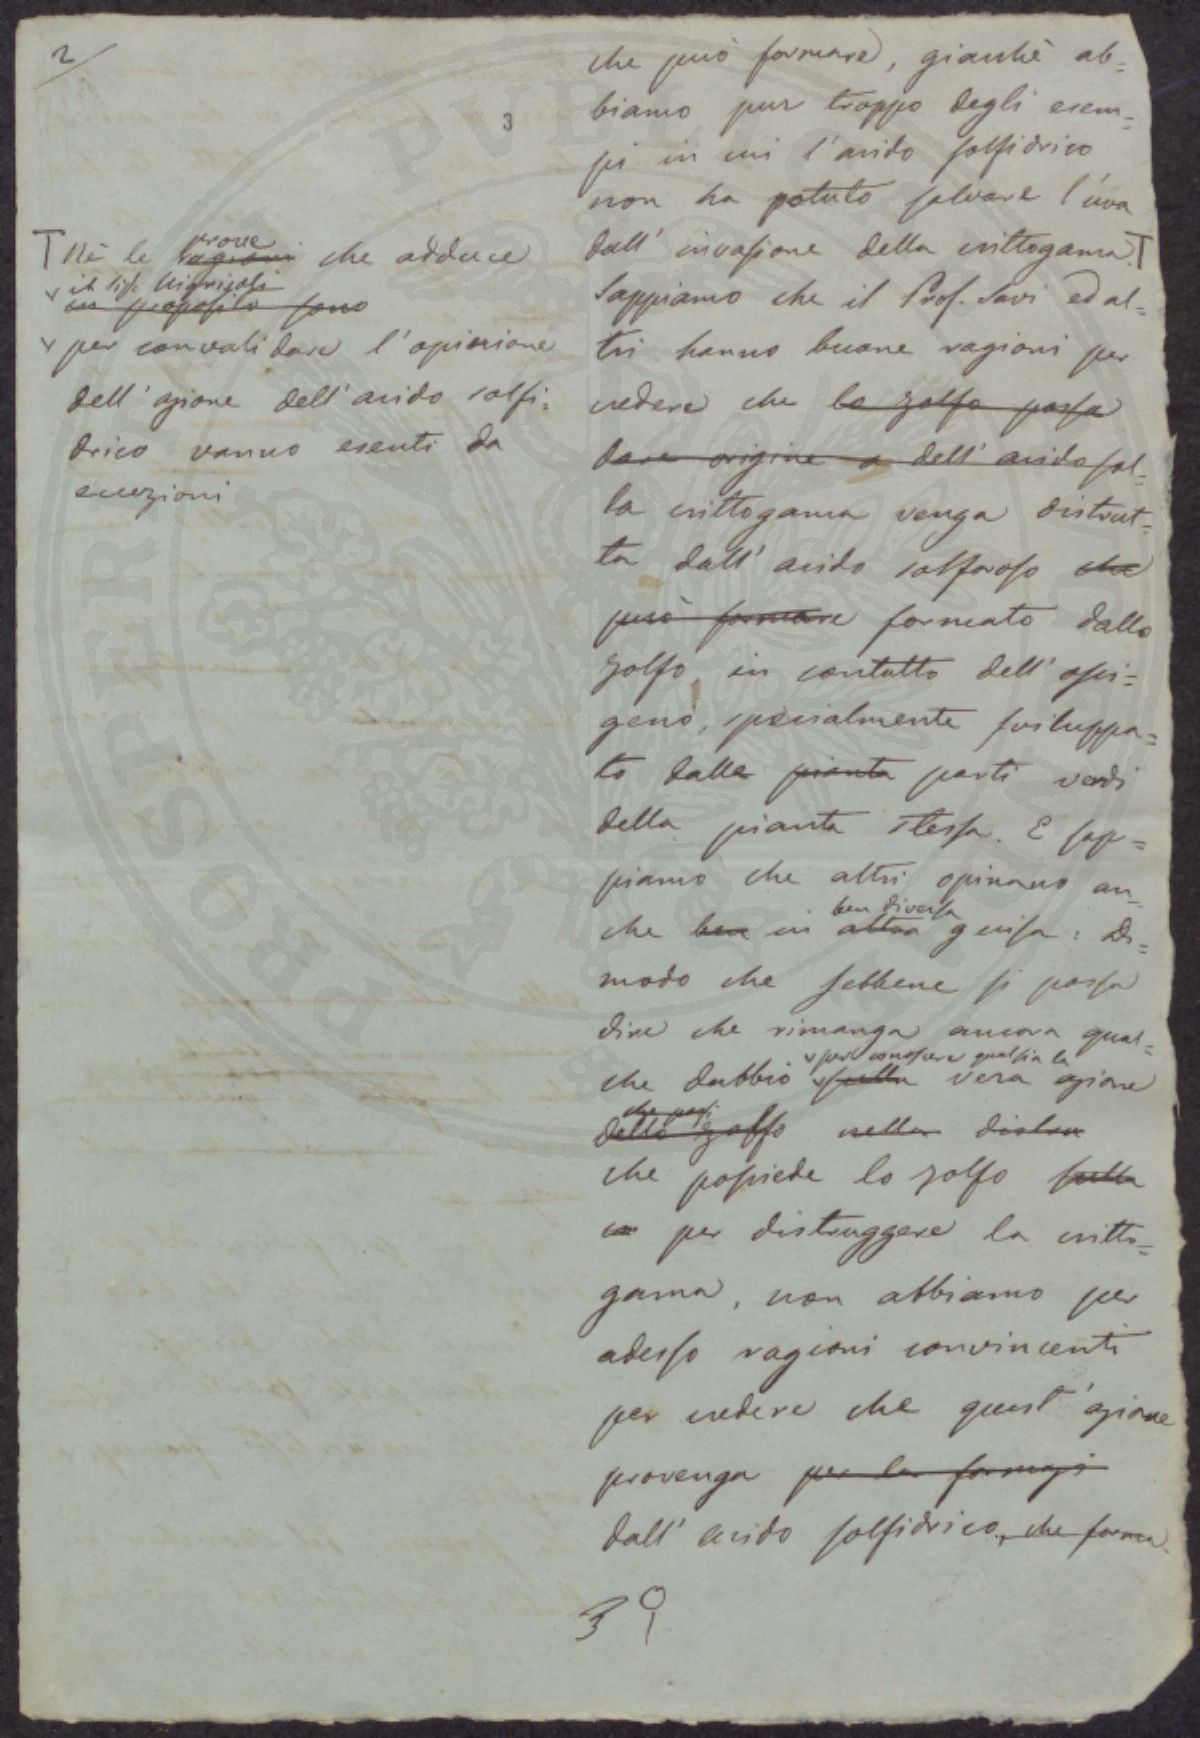 2
3
che può formare, giacchè ab=
biamo pur troppo degli esem=
pi in cui l'acido solfidrico
non ha potuto salvare l'uva
dall'invasione della crittogama. T
Sappiamo che il Prof. Savi ed al=
tri hanno buone ragioni per
credere che lo zolfo possa
dare origine a dell'acido sol=
la crittogama venga distrut=
ta dall'acido solforoso che
può formare formato dallo
zolfo in contatto dell'ossi=
geno, specialmente sviluppa=
to dalle pianta parti verdi
della pianta stessa. E sap=
piamo che altri opinano an=
ben diversa
che ben in altra guisa: Di=
modo che sebbene si possa
dire che rimanga ancora qual=
per conoscere qual sia la
che dubbio sulla vera azione
che possi
dello zolfo nella distru
che possiede lo zolfo sulla
per distruggere la critto=
gama, non abbiamo per
adesso ragioni convincenti
per credere che quest'azione
provenga per la formazi
dall'acido solfidrico, che forma
T Nè le prove
ragioni che adduce
il Sig.
in proposito sono
per convalidare l'opinione
dell'azione dell'acido solfi=
drico vanno esenti da
eccezioni